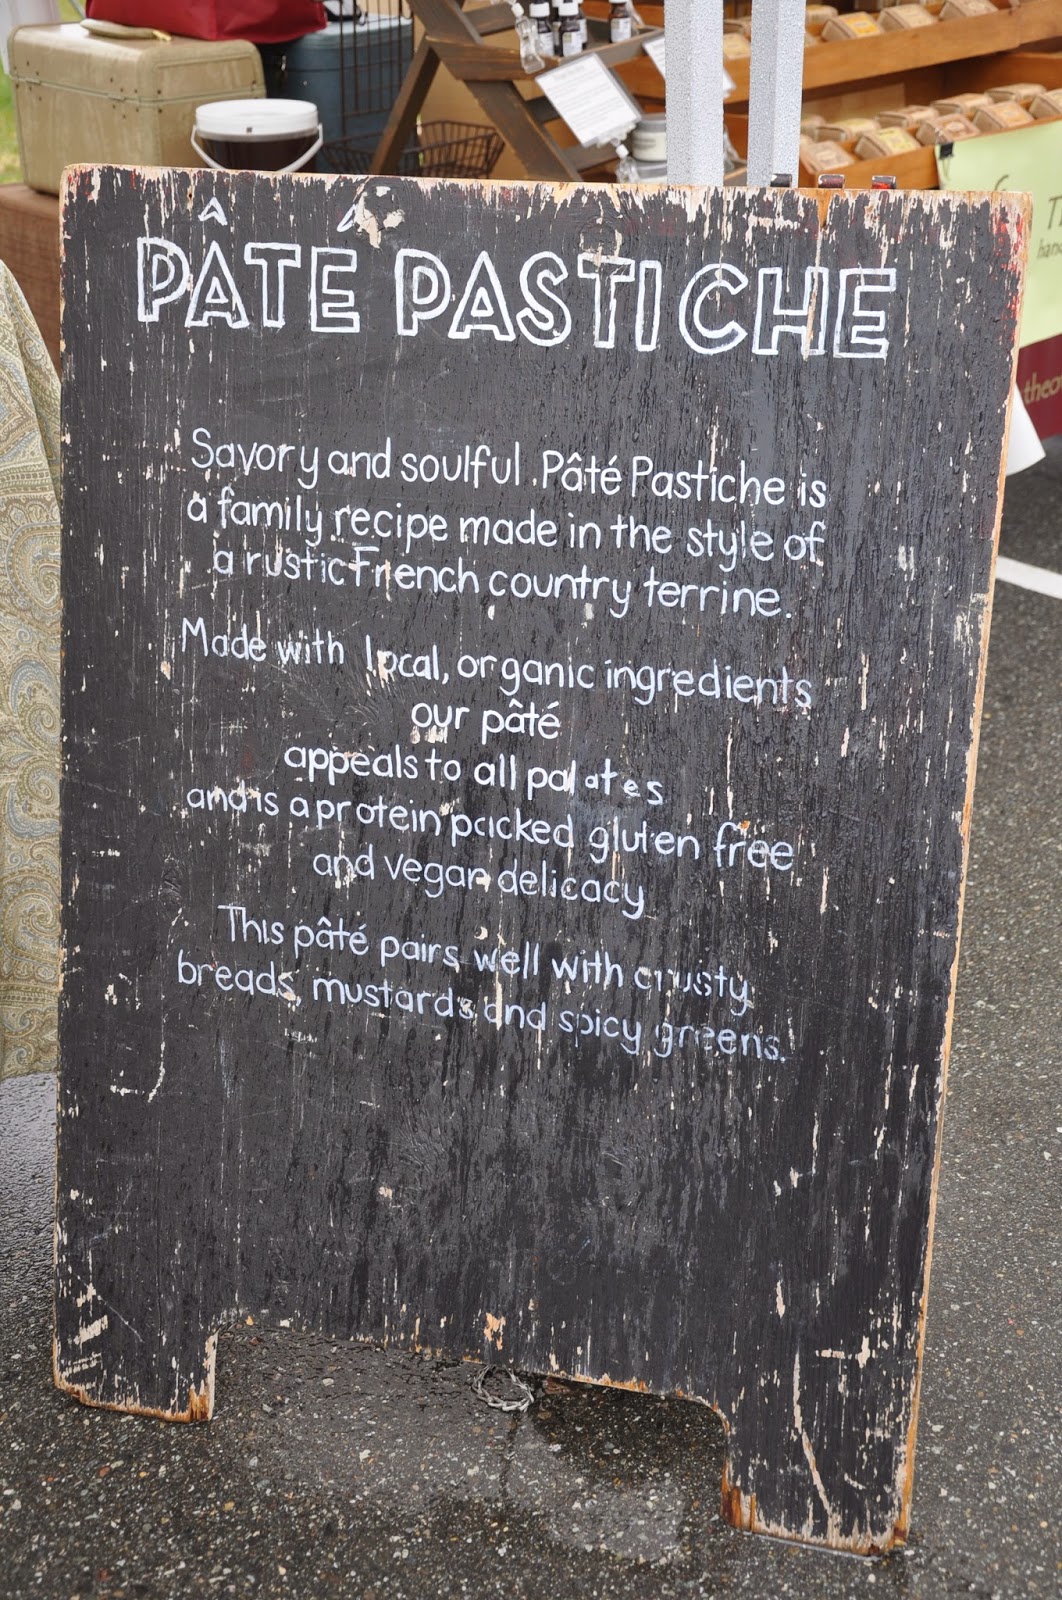 PÂTÉ PASTICHE
Savory and soulful. Pâté Pastiche is
a family recipe made in the style of
a rustic French country terrine.
Made with local, organic ingredients
our pâté
appeals to all palates
and is a protein packed gluten free
and vegan delicacy
This pâté pairs well with crusty
breads, mustards and spicy greens.